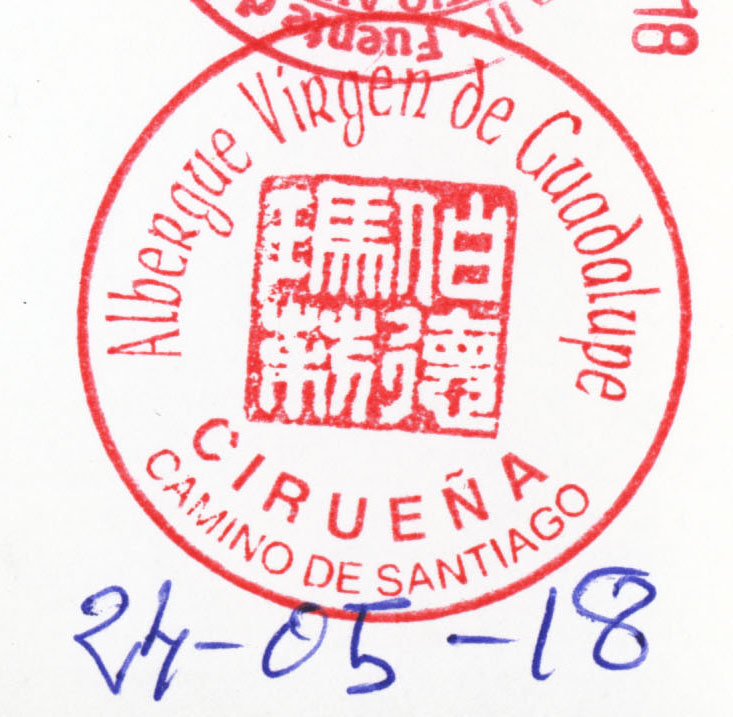 18
Fuente d
Albergue Virgen de Guadalupe
伯德
瑪
CIRUEÑA
CAMINO DE SANTIAGO
24-05-18